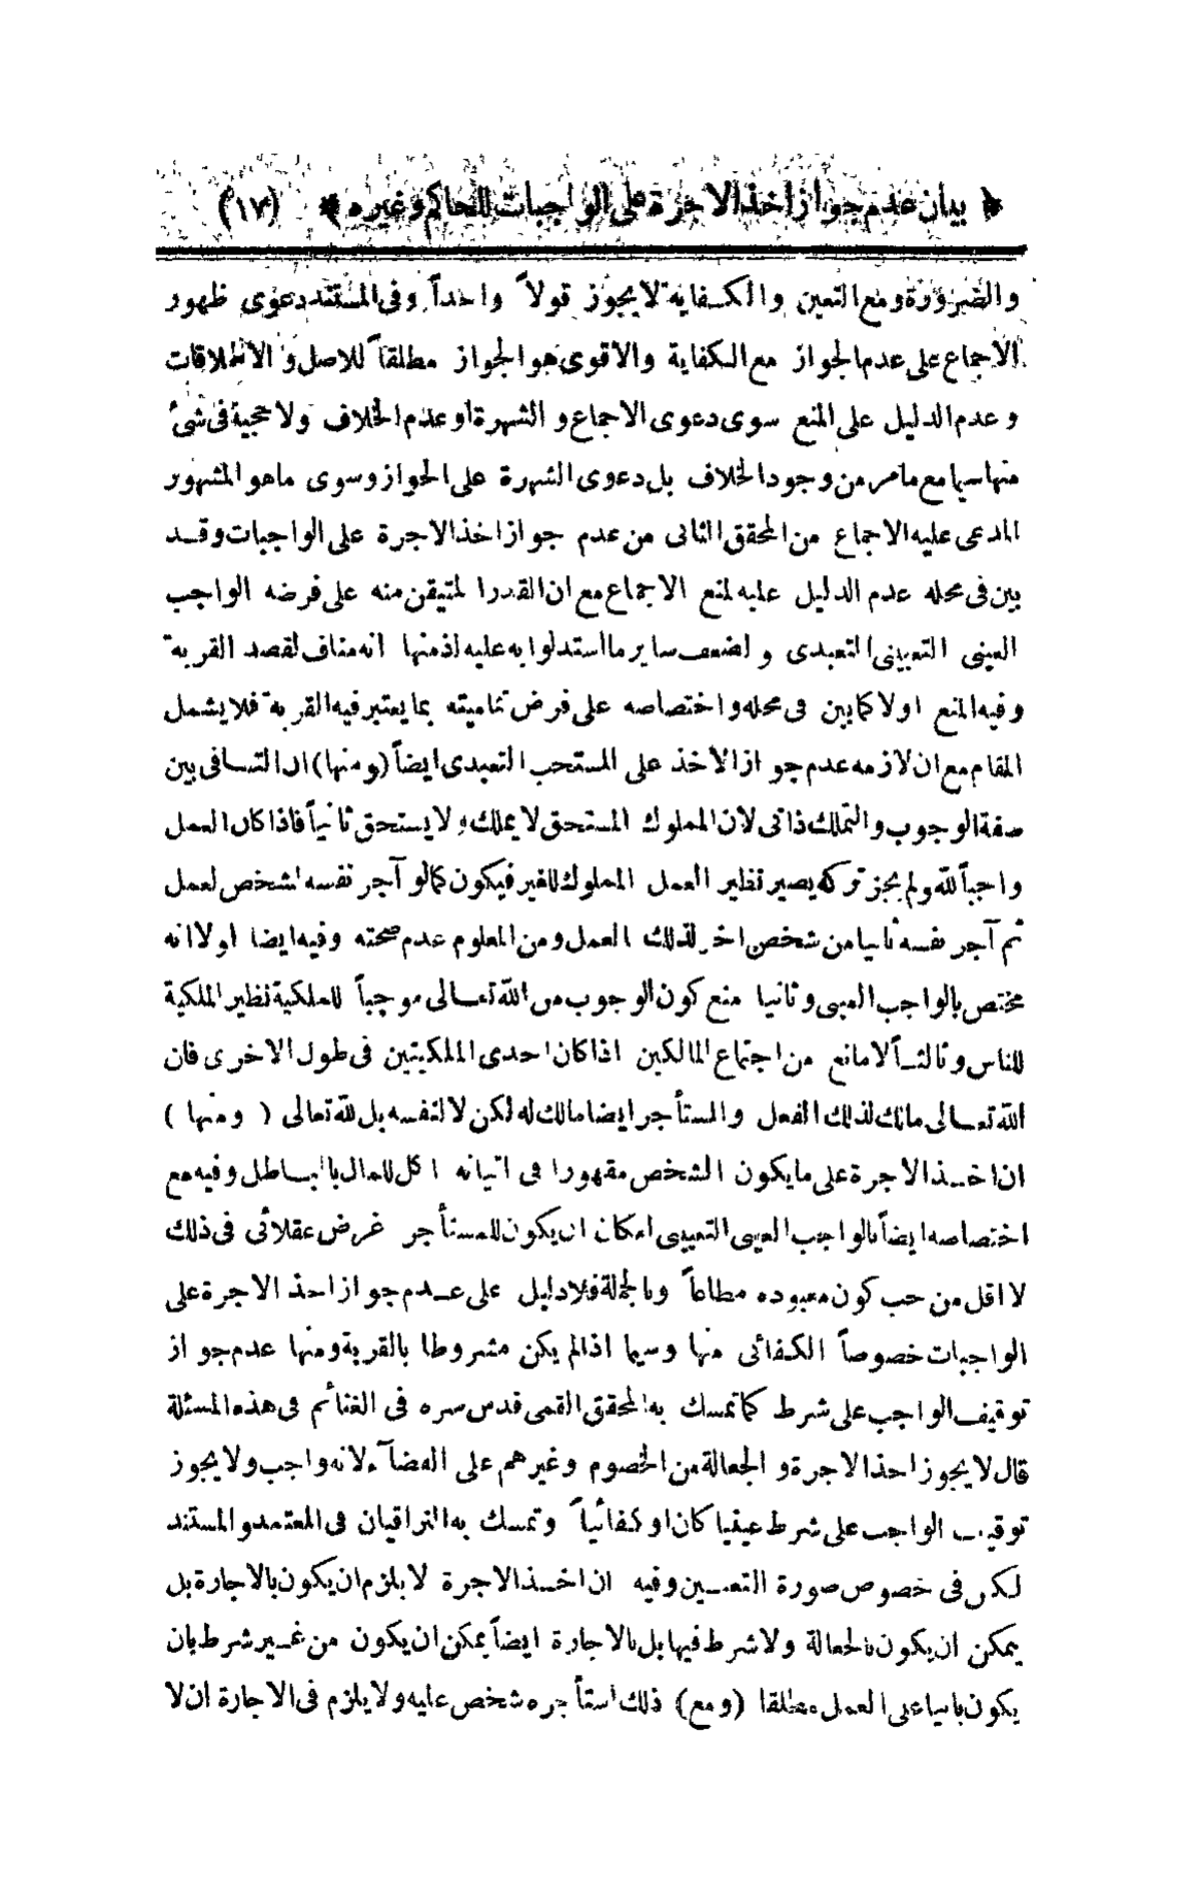 ﴿ بيان عدم جواز اخذ الاجرة على الواجبات للحاكم وغيره ﴾ (١٧)
والضرورة ومع التعين والكفاية لا يجوز قولاً واحداً وفى المستند دعوى ظهور
الاجماع على عدم الجواز مع الكفاية والاقوى هو الجواز مطلقاً للاصل و الاطلاقات
و عدم الدليل على المنع سوى دعوى الاجماع و الشهرة او عدم الخلاف ولا حجية فى شئ
منها سيما مع ما مر من وجود الخلاف بل دعوى الشهرة على الجواز وسوى ما هو المشهور
المدعى عليه الاجماع من المحقق الثانى من عدم جواز اخذ الاجرة على الواجبات وقد
بين فى محله عدم الدليل عليه لمنع الاجماع مع ان القدر المتيقن منه على فرضه الواجب
العينى التعيينى التعبدى و لضعف ساير ما استدلوا به عليه اذ منها انه مناف لقصد القربة
وفيه المنع اولا كما بين فى محله و اختصاصه على فرض تماميته بما يعتبر فيه القربة فلا يشمل
المقام مع ان لازمه عدم جواز الاخذ على المستحب التعبدى ايضاً (ومنها) ان التنافى بين
صفة الوجوب والتملك ذاتى لان المملوك المستحق لا يملك ولا يستحق ثانياً فاذا كان العمل
واجباً لله ولم يجز تركه يصير نظير العمل المملوك للغير فيكون كما لو آجر نفسه لشخص لعمل
ثم آجر نفسه ثانيا من شخص اخر لذلك العمل ومن المعلوم عدم صحته وفيه ايضا اولا انه
مختص بالواجب العينى وثانيا منع كون الوجوب من الله تعالى موجباً للملكية نظير الملكية
للناس وثالثاً لا مانع من اجتماع المالكين اذا كان احدى الملكيتين فى طول الاخرى فان
الله تعالى مالك لذلك الفعل والمستأجر ايضا مالك له لكن لا لنفسه بل لله تعالى ( ومنها )
ان اخذ الاجرة على ما يكون الشخص مقهورا فى اتيانه اكل للمال بالباطل وفيه مع
اختصاصه ايضاً بالواجب العينى التعيينى امكان ان يكون للمستأجر غرض عقلائى فى ذلك
لا اقل من حب كون معبوده مطاعاً وبالجملة فلا دليل على عدم جواز اخذ الاجرة على
الواجبات خصوصاً الكفائى منها وسيما اذا لم يكن مشروطا بالقربة ومنها عدم جواز
توقيف الواجب على شرط كما تمسك به المحقق القمى قدس سره فى الغنائم فى هذه المسئلة
قال لا يجوز اخذ الاجرة و الجعالة من الخصوم وغيرهم على القضآء لانه واجب ولا يجوز
توقيف الواجب على شرط عينيا كان او كفائياً وتمسك به النراقيان فى المعتمد والمستند
لكن فى خصوص صورة التعيين وفيه ان اخذ الاجرة لا يلزم ان يكون بالاجارة بل
يمكن ان يكون بالجعالة ولا شرط فيها بل بالاجارة ايضاً يمكن ان يكون من غير شرط بان
يكون بانيا على العمل مطلقا (ومع) ذلك استأجره شخص عليه ولا يلزم فى الاجارة ان لا